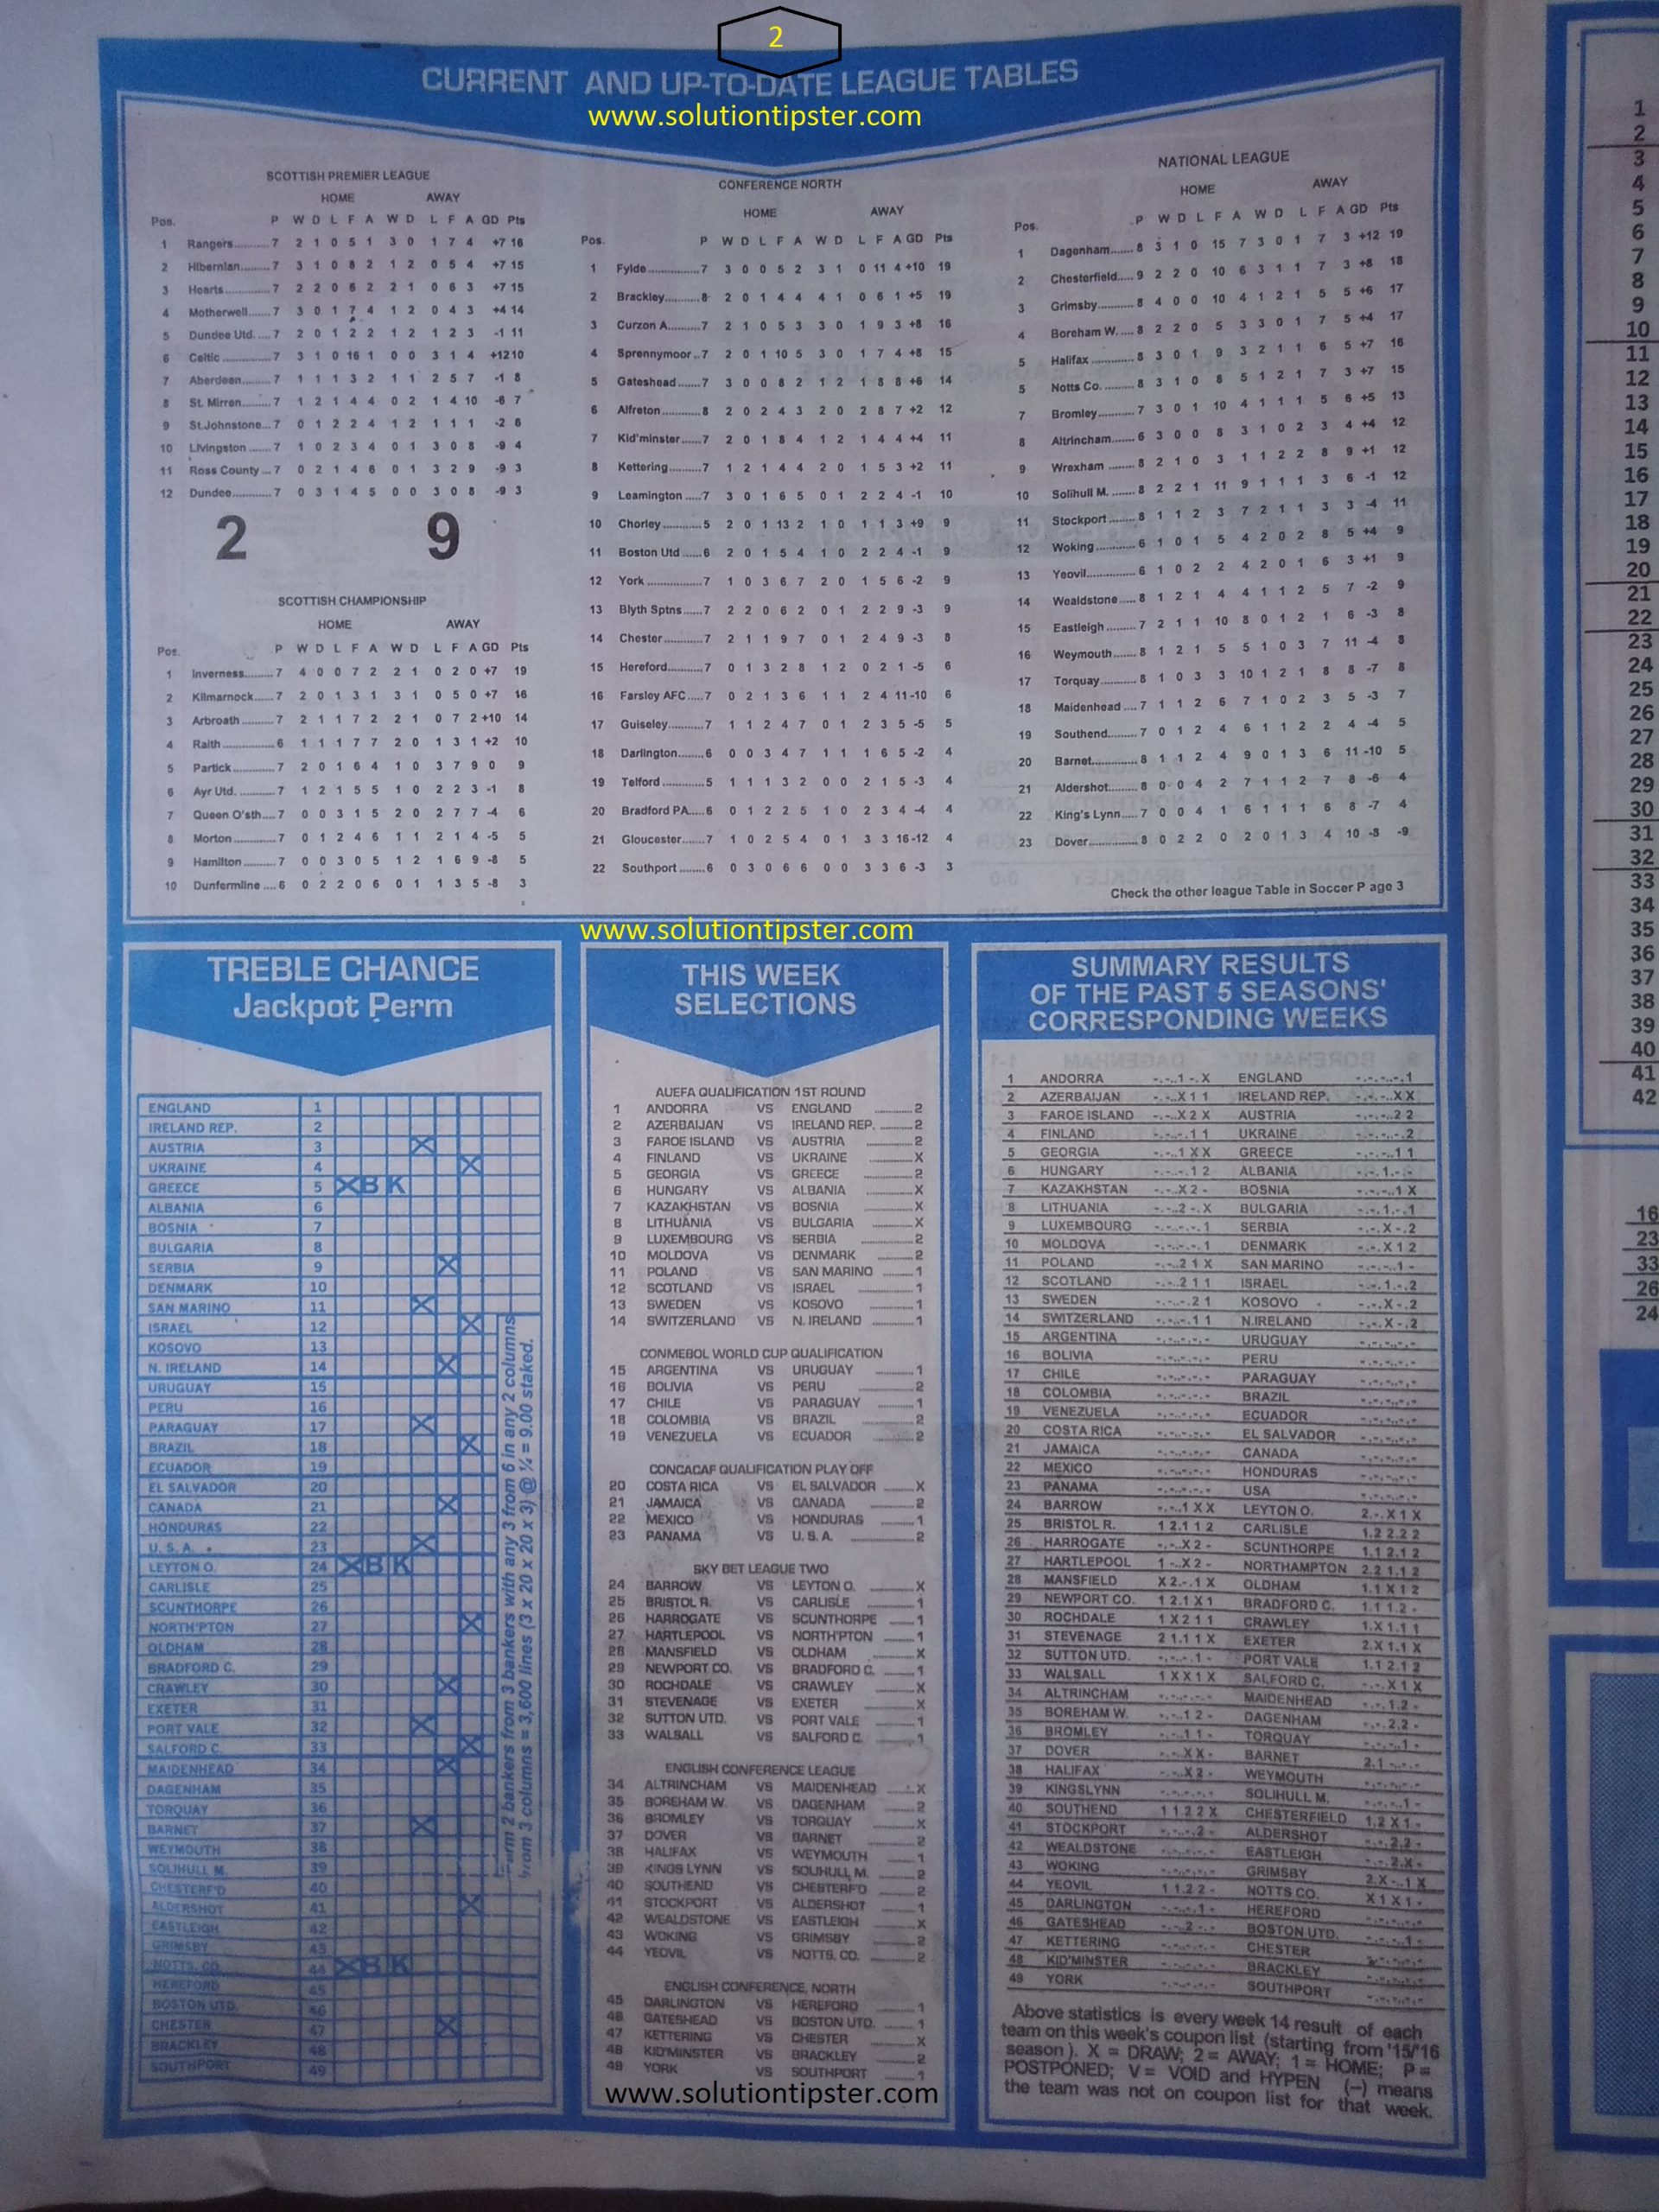 2
CURRENT AND UP-TO-DATE LEAGUE TABLES
www.solutiontipster.com
SCOTTISH PREMIER LEAGUE
HOME AWAY
Pos. P W D L F A W D L F A GD Pts
1 Rangers 7 2 1 0 5 1 3 0 1 7 4 +7 16
2 Hibernian 7 3 1 0 8 2 1 2 0 5 4 +7 15
3 Hearts 7 2 2 0 6 2 2 1 0 6 3 +7 15
4 Motherwell 7 3 0 1 7 4 1 2 0 4 3 +4 14
5 Dundee Utd. 7 2 0 1 2 2 1 2 1 2 3 -1 11
6 Celtic 7 3 1 0 16 1 0 0 3 1 4 +12 10
7 Aberdeen 7 1 1 1 3 2 1 1 2 5 7 -1 8
8 St. Mirren 7 1 2 1 4 4 0 2 1 4 10 -6 7
9 St.Johnstone 7 0 1 2 2 4 1 2 1 1 1 -2 6
10 Livingston 7 1 0 2 3 4 0 1 3 0 8 -9 4
11 Ross County 7 0 2 1 4 6 0 1 3 2 9 -9 3
12 Dundee 7 0 3 1 4 5 0 0 3 0 8 -9 3
2 9
SCOTTISH CHAMPIONSHIP
HOME AWAY
Pos. P W D L F A W D L F A GD Pts
1 Inverness 7 4 0 0 7 2 2 1 0 2 0 +7 19
2 Kilmarnock 7 2 0 1 3 1 3 1 0 5 0 +7 16
3 Arbroath 7 2 1 1 7 2 2 1 0 7 2 +10 14
4 Raith 6 1 1 1 7 7 2 0 1 3 1 +2 10
5 Partick 7 2 0 1 6 4 1 0 3 7 9 0 9
6 Ayr Utd. 7 1 2 1 5 5 1 0 2 2 3 -1 8
7 Queen O'sth 7 0 0 3 1 5 2 0 2 7 7 -4 6
8 Morton 7 0 1 2 4 6 1 1 2 1 4 -5 5
9 Hamilton 7 0 0 3 0 5 1 2 1 6 9 -8 5
10 Dunfermline 6 0 2 2 0 6 0 1 1 3 5 -8 3
CONFERENCE NORTH
HOME AWAY
Pos. P W D L F A W D L F A GD Pts
1 Fylde 7 3 0 0 5 2 3 1 0 11 4 +10 19
2 Brackley 8 2 0 1 4 4 4 1 0 6 1 +5 19
3 Curzon A. 7 2 1 0 5 3 3 0 1 9 3 +8 16
4 Sprennymoor 7 2 0 1 10 5 3 0 1 7 4 +8 15
5 Gateshead 7 3 0 0 8 2 1 2 1 8 8 +6 14
6 Alfreton 8 2 0 2 4 3 2 0 2 8 7 +2 12
7 Kid'minster 7 2 0 1 8 4 1 2 1 4 4 +4 11
8 Kettering 7 1 2 1 4 4 2 0 1 5 3 +2 11
9 Leamington 7 3 0 1 6 5 0 1 2 2 4 -1 10
10 Chorley 5 2 0 1 13 2 1 0 1 1 3 +9 9
11 Boston Utd 6 2 0 1 5 4 1 0 2 2 4 -1 9
12 York 7 1 0 3 6 7 2 0 1 5 6 -2 9
13 Blyth Sptns 7 2 2 0 6 2 0 1 2 2 9 -3 9
14 Chester 7 2 1 1 9 7 0 1 2 4 9 -3 8
15 Hereford 7 0 1 3 2 8 1 2 0 2 1 -5 6
16 Farsley AFC 7 0 2 1 3 6 1 1 2 4 11 -10 6
17 Guiseley 7 1 1 2 4 7 0 1 2 3 5 -5 5
18 Darlington 6 0 0 3 4 7 1 1 1 6 5 -2 4
19 Telford 5 1 1 1 3 2 0 0 2 1 5 -3 4
20 Bradford PA 6 0 1 2 2 5 1 0 2 3 4 -4 4
21 Gloucester 7 1 0 2 5 4 0 1 3 3 16 -12 4
22 Southport 6 0 3 0 6 6 0 0 3 3 6 -3 3
NATIONAL LEAGUE
HOME AWAY
Pos. P W D L F A W D L F A GD Pts
1 Dagenham 8 3 1 0 15 7 3 0 1 7 3 +12 19
2 Chesterfield 9 2 2 0 10 6 3 1 1 7 3 +8 18
3 Grimsby 8 4 0 0 10 4 1 2 1 5 5 +6 17
4 Boreham W. 8 2 2 0 5 3 3 0 1 7 5 +4 17
5 Halifax 8 3 0 1 9 3 2 1 1 6 5 +7 16
5 Notts Co. 8 3 1 0 8 5 1 2 1 7 3 +7 15
7 Bromley 7 3 0 1 10 4 1 1 1 5 6 +5 13
8 Altrincham 6 3 0 0 8 3 1 0 2 3 4 +4 12
9 Wrexham 8 2 1 0 3 1 1 2 2 8 9 +1 12
10 Solihull M. 8 2 2 1 11 9 1 1 1 3 6 -1 12
11 Stockport 8 1 1 2 3 7 2 1 1 3 3 -4 11
12 Woking 6 1 0 1 5 4 2 0 2 8 5 +4 9
13 Yeovil 6 1 0 2 2 4 2 0 1 6 3 +1 9
14 Wealdstone 8 1 2 1 4 4 1 1 2 5 7 -2 9
15 Eastleigh 7 2 1 1 10 8 0 1 2 1 6 -3 8
16 Weymouth 8 1 2 1 5 5 1 0 3 7 11 -4 8
17 Torquay 8 1 0 3 3 10 1 2 1 8 8 -7 8
18 Maidenhead 7 1 1 2 6 7 1 0 2 3 5 -3 7
19 Southend 7 0 1 2 4 6 1 1 2 2 4 -4 5
20 Barnet 8 1 1 2 4 9 0 1 3 6 11 -10 5
21 Aldershot 8 0 0 4 2 7 1 1 2 7 8 -6 4
22 King's Lynn 7 0 0 4 1 6 1 1 1 6 8 -7 4
23 Dover 8 0 2 2 0 2 0 1 3 4 10 -8 -9
Check the other league Table in Soccer P age 3
www.solutiontipster.com
TREBLE CHANCE
Jackpot Perm
ENGLAND 1
IRELAND REP. 2
AUSTRIA 3 X
UKRAINE 4 X
GREECE 5 X B K
ALBANIA 6
BOSNIA 7
BULGARIA 8
SERBIA 9 X
DENMARK 10
SAN MARINO 11 X
ISRAEL 12 X
KOSOVO 13
N. IRELAND 14 X
URUGUAY 15
PERU 16
PARAGUAY 17 X
BRAZIL 18 X
ECUADOR 19
EL SALVADOR 20
CANADA 21 X
HONDURAS 22
U. S. A. 23 X
LEYTON O. 24 X B K
CARLISLE 25
SCUNTHORPE 26
NORTH'PTON 27 X
OLDHAM 28
BRADFORD C. 29
CRAWLEY 30 X
EXETER 31
PORT VALE 32 X
SALFORD C. 33 X
MAIDENHEAD 34 X
DAGENHAM 35
TORQUAY 36
BARNET 37 X
WEYMOUTH 38
SOLIHULL M. 39
CHESTERF'D 40
ALDERSHOT 41 X
EASTLEIGH 42
GRIMSBY 43
NOTTS. CO. 44 X B K
HEREFORD 45
BOSTON UTD. 46
CHESTER 47 X
BRACKLEY 48
SOUTHPORT 49
Perm 2 bankers from 3 bankers with any 3 from 6 in any 2 columns
from 3 columns = 3,600 lines (3 x 20 x 20 x 3) @ ¼ = 9.00 staked.
THIS WEEK
SELECTIONS
AUEFA QUALIFICATION 1ST ROUND
1 ANDORRA VS ENGLAND 2
2 AZERBAIJAN VS IRELAND REP. 2
3 FAROE ISLAND VS AUSTRIA 2
4 FINLAND VS UKRAINE X
5 GEORGIA VS GREECE 2
6 HUNGARY VS ALBANIA X
7 KAZAKHSTAN VS BOSNIA X
8 LITHUANIA VS BULGARIA X
9 LUXEMBOURG VS SERBIA 2
10 MOLDOVA VS DENMARK 2
11 POLAND VS SAN MARINO 1
12 SCOTLAND VS ISRAEL 1
13 SWEDEN VS KOSOVO 1
14 SWITZERLAND VS N. IRELAND 1
CONMEBOL WORLD CUP QUALIFICATION
15 ARGENTINA VS URUGUAY 1
16 BOLIVIA VS PERU 2
17 CHILE VS PARAGUAY 1
18 COLOMBIA VS BRAZIL 2
19 VENEZUELA VS ECUADOR 2
CONCACAF QUALIFICATION PLAY OFF
20 COSTA RICA VS EL SALVADOR X
21 JAMAICA VS CANADA 2
22 MEXICO VS HONDURAS 1
23 PANAMA VS U. S. A. 2
SKY BET LEAGUE TWO
24 BARROW VS LEYTON O. X
25 BRISTOL R. VS CARLISLE 1
26 HARROGATE VS SCUNTHORPE 1
27 HARTLEPOOL VS NORTH'PTON 1
28 MANSFIELD VS OLDHAM X
29 NEWPORT CO. VS BRADFORD C. 1
30 ROCHDALE VS CRAWLEY X
31 STEVENAGE VS EXETER X
32 SUTTON UTD. VS PORT VALE 1
33 WALSALL VS SALFORD C. 1
ENGLISH CONFERENCE LEAGUE
34 ALTRINCHAM VS MAIDENHEAD X
35 BOREHAM W. VS DAGENHAM 2
36 BROMLEY VS TORQUAY X
37 DOVER VS BARNET 2
38 HALIFAX VS WEYMOUTH 1
39 KINGS LYNN VS SOLIHULL M. 2
40 SOUTHEND VS CHESTERF'D 2
41 STOCKPORT VS ALDERSHOT 1
42 WEALDSTONE VS EASTLEIGH X
43 WOKING VS GRIMSBY 2
44 YEOVIL VS NOTTS. CO. 2
ENGLISH CONFERENCE, NORTH
45 DARLINGTON VS HEREFORD 1
46 GATESHEAD VS BOSTON UTD. 1
47 KETTERING VS CHESTER X
48 KID'MINSTER VS BRACKLEY 2
49 YORK VS SOUTHPORT 1
www.solutiontipster.com
SUMMARY RESULTS
OF THE PAST 5 SEASONS'
CORRESPONDING WEEKS
1 ANDORRA -.-..1 -. X ENGLAND -.-.-.-.1
2 AZERBAIJAN -.-..X 1 1 IRELAND REP. -.-.-..X X
3 FAROE ISLAND -.-..X 2 X AUSTRIA -.-.-..2 2
4 FINLAND -.-.-.1 1 UKRAINE -.-.-.-.2
5 GEORGIA -.-..1 X X GREECE -.-.-..1 1
6 HUNGARY -.-.-.1 2 ALBANIA -.-.1.-.-
7 KAZAKHSTAN -.-..X 2 - BOSNIA -.-.-..1 X
8 LITHUANIA -.-..2 -.X BULGARIA -.-.1.-.1
9 LUXEMBOURG -.-.-.-.1 SERBIA -.-.X -.2
10 MOLDOVA -.-.-.-.1 DENMARK -.-.X 1 2
11 POLAND -.-..2 1 X SAN MARINO -.-.-..1 -
12 SCOTLAND -.-..2 1 1 ISRAEL -.-.1.-.2
13 SWEDEN -.-.-.2 1 KOSOVO -.-.X -.2
14 SWITZERLAND -.-.-.1 1 N.IRELAND -.-.X -.2
15 ARGENTINA -.-.-.-.- URUGUAY -.-.-.-.-
16 BOLIVIA -.-.-.-.- PERU -.-.-.-.-
17 CHILE -.-.-.-.- PARAGUAY -.-.-.-.-
18 COLOMBIA -.-.-.-.- BRAZIL -.-.-.-.-
19 VENEZUELA -.-.-.-.- ECUADOR -.-.-.-.-
20 COSTA RICA -.-.-.-.- EL SALVADOR -.-.-.-.-
21 JAMAICA -.-.-.-.- CANADA -.-.-.-.-
22 MEXICO -.-.-.-.- HONDURAS -.-.-.-.-
23 PANAMA -.-.-.-.- USA -.-.-.-.-
24 BARROW -.-..1 X X LEYTON O. 2.-.X 1 X
25 BRISTOL R. 1 2.1 1 2 CARLISLE 1.2 2.2 2
26 HARROGATE -.-..X 2 - SCUNTHORPE 1.1 2.1 2
27 HARTLEPOOL 1 -..X 2 - NORTHAMPTON 2.2 1.1 2
28 MANSFIELD X 2.-.1 X OLDHAM 1.1 X 1 2
29 NEWPORT CO. 1 2.1 X 1 BRADFORD C. 1.1 1.2 -
30 ROCHDALE 1 X 2 1 1 CRAWLEY 1.X 1.1 1
31 STEVENAGE 2 1.1 1 X EXETER 2.X 1.1 X
32 SUTTON UTD. -.-.-.1 - PORT VALE 1.1 2.1 2
33 WALSALL 1 X X 1 X SALFORD C. -.-.X 1 X
34 ALTRINCHAM -.-.-.-.- MAIDENHEAD -.-.1.2 -
35 BOREHAM W. -.-..1 2 - DAGENHAM -.-.2.2 -
36 BROMLEY -.-..1 1 - TORQUAY -.-.-..1 -
37 DOVER -.-..X X - BARNET 2.1 -.-.-
38 HALIFAX -.-..X 2 - WEYMOUTH -.-.-.-.-
39 KINGSLYNN -.-.-.-.- SOLIHULL M. -.-.-..1 -
40 SOUTHEND 1 1.2 2 X CHESTERFIELD 1.2 X 1 -
41 STOCKPORT -.-.-.2 - ALDERSHOT -.-.2.2 -
42 WEALDSTONE -.-.-.-.- EASTLEIGH -.-.2.X -
43 WOKING -.-.-.-.- GRIMSBY 2.X -..1 X
44 YEOVIL 1 1.2 2 - NOTTS CO. X 1 X 1 -
45 DARLINGTON -.-.-.1 - HEREFORD -.-.-.-.-
46 GATESHEAD -.-..2 -.- BOSTON UTD. -.-.-..1 -
47 KETTERING -.-.-.-.- CHESTER
48 KID'MINSTER -.-.-.-.- BRACKLEY
49 YORK -.-.-.-.- SOUTHPORT -.-.-.-.-
Above statistics is every week 14 result of each
team on this week's coupon list (starting from '15/'16
season ). X = DRAW; 2 = AWAY; 1 = HOME; P =
POSTPONED; V = VOID and HYPEN (–) means
the team was not on coupon list for that week.
1
2
3
4
5
6
7
8
9
10
11
12
13
14
15
16
17
18
19
20
21
22
23
24
25
26
27
28
29
30
31
32
33
34
35
36
37
38
39
40
41
42
16
23
33
26
24